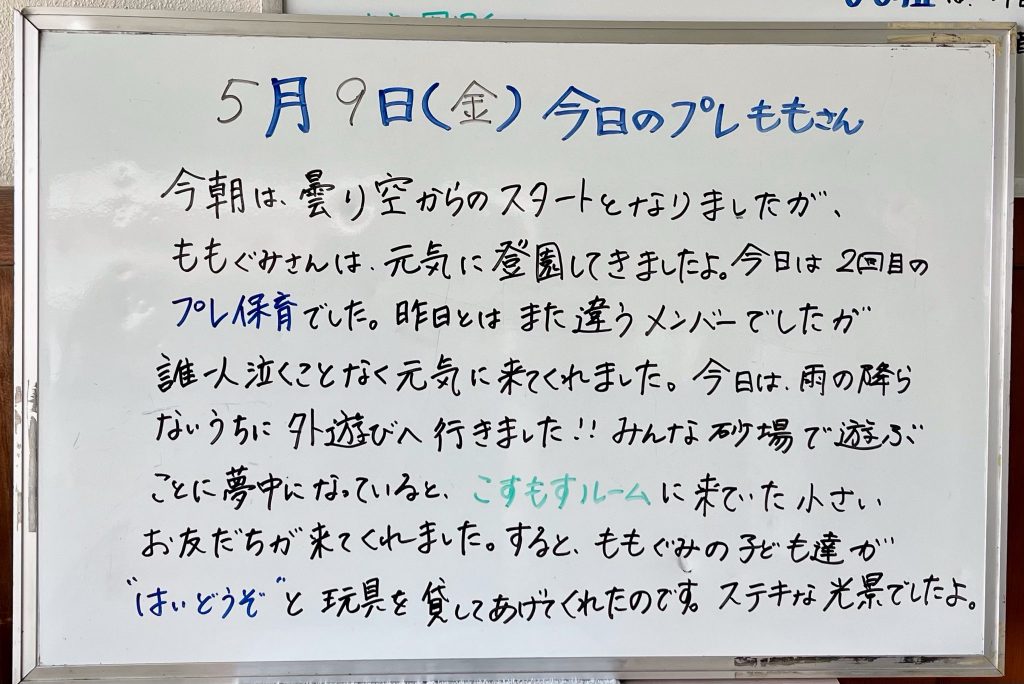 5月9日(金) 今日のプレももさん
今朝は、曇り空からのスタートとなりましたが、
ももぐみさんは、元気に登園してきましたよ。今日は2回目の
プレ保育でした。昨日とはまた違うメンバーでしたが
誰一人泣くことなく元気に来てくれました。今日は、雨の降ら
ないうちに外遊びへ行きました!!みんな砂場で遊ぶ
ことに夢中になっていると、こすもすルームに来ていた小さい
お友だちが来てくれました。すると、ももぐみの子ども達が
"はいどうぞ"と玩具を貸してあげてくれたのです。ステキな光景でしたよ。